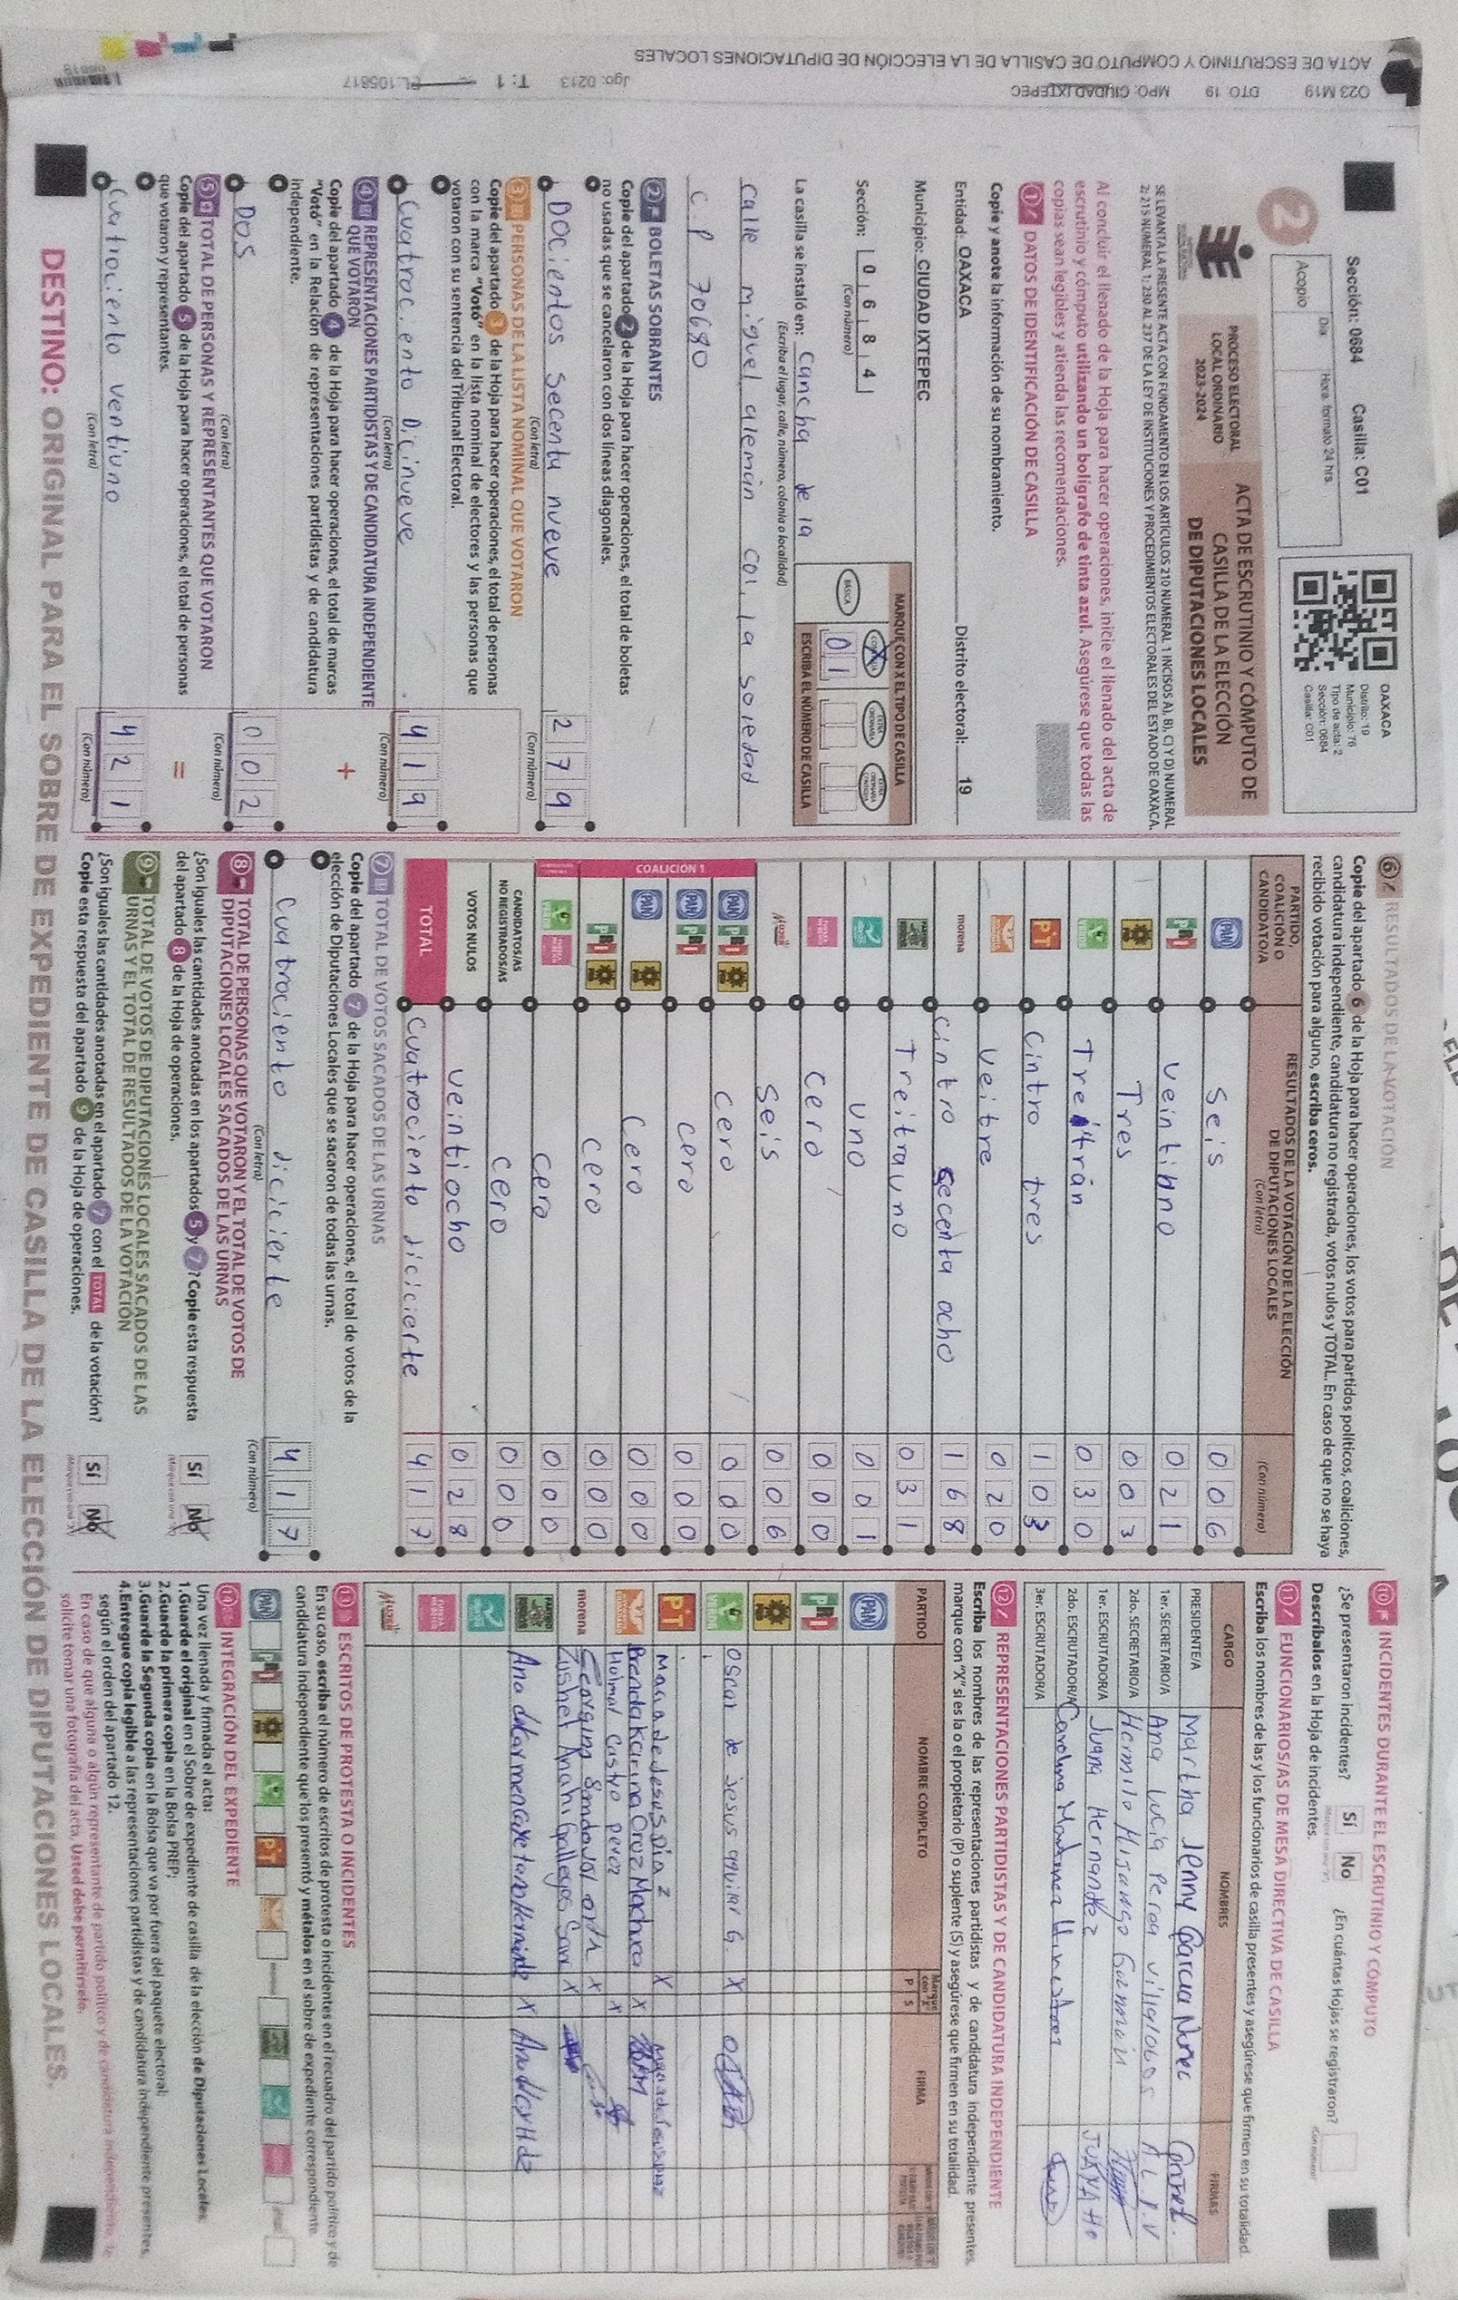 ACTA DE ESCRUTINIO Y CÓMPUTO DE CASILLA DE LA ELECCIÓN DE DIPUTACIONES LOCALES
023 M19 DTO. 19 MPO: CIUDAD IXTEPEC
Jgo: 0213 T: 1
PL105817
Sección: 0684 Casilla: C01
2
Día Hora, formato 24 hrs.
Acopio
OAXACA
Distrito: 19
Municipio: 76
Tipo de acta: 2
Sección: 0684
Casilla: C01
PROCESO ELECTORAL
LOCAL ORDINARIO
2023-2024
ACTA DE ESCRUTINIO Y CÓMPUTO DE
CASILLA DE LA ELECCIÓN
DE DIPUTACIONES LOCALES
SE LEVANTA LA PRESENTE ACTA CON FUNDAMENTO EN LOS ARTÍCULOS 210 NUMERAL 1 INCISOS A), B), C) Y D) NUMERAL
2; 215 NUMERAL 1; 230 AL 237 DE LA LEY DE INSTITUCIONES Y PROCEDIMIENTOS ELECTORALES DEL ESTADO DE OAXACA.
Al concluir el llenado de la Hoja para hacer operaciones, inicie el llenado del acta de
escrutinio y cómputo utilizando un bolígrafo de tinta azul. Asegúrese que todas las
copias sean legibles y atienda las recomendaciones.
1 DATOS DE IDENTIFICACIÓN DE CASILLA
Copie y anote la información de su nombramiento.
Entidad: OAXACA Distrito electoral: 19
Municipio: CIUDAD IXTEPEC
Sección: 0 6 8 4
(Con número)
MARQUE CON X EL TIPO DE CASILLA
BÁSICA
ESCRIBA EL NÚMERO DE CASILLA
01
La casilla se instaló en: Cancha de la
(Escriba el lugar, calle, número, colonia o localidad)
calle miguel alemán col. la soledad
C P 70680
2 BOLETAS SOBRANTES
Copie del apartado 2 de la Hoja para hacer operaciones, el total de boletas
no usadas que se cancelaron con dos líneas diagonales.
DOcientos secenta nueve 279
(Con letra) (Con número)
3 PERSONAS DE LA LISTA NOMINAL QUE VOTARON
Copie del apartado 3 de la Hoja para hacer operaciones, el total de personas
con la marca "Votó" en la lista nominal de electores y las personas que
votaron con su sentencia del Tribunal Electoral.
Cuatrociento Dicinueve 419
(Con letra) (Con número)
4 REPRESENTACIONES PARTIDISTAS Y DE CANDIDATURA INDEPENDIENTE
QUE VOTARON
Copie del apartado 4 de la Hoja para hacer operaciones, el total de marcas
"Votó" en la Relación de representaciones partidistas y de candidatura
independiente.
+
DOS 002
(Con letra) (Con número)
5 TOTAL DE PERSONAS Y REPRESENTANTES QUE VOTARON
Copie del apartado 5 de la Hoja para hacer operaciones, el total de personas
que votaron y representantes.
=
Cuatrociento ventiuno 421
(Con letra) (Con número)
6 RESULTADOS DE LA VOTACIÓN
Copie del apartado 6 de la Hoja para hacer operaciones, los votos para partidos políticos, coaliciones,
candidatura independiente, candidatura no registrada, votos nulos y TOTAL. En caso de que no se haya
recibido votación para alguno, escriba ceros.
PARTIDO,
COALICIÓN O
CANDIDATO/A
RESULTADOS DE LA VOTACIÓN DE LA ELECCIÓN
DE DIPUTACIONES LOCALES
(Con letra) (Con número)
PAN Seis 006
PRI veintiuno 021
PRD Tres 003
VERDE Treitrán 030
PT Cintro tres 103
Veitre 020
morena Cintro secenta ocho 168
Treitrauno 031
uno 001
cero 000
Mujer Seis 006
COALICIÓN 1
PAN PRI PRD cero 000
PAN PRI cero 000
PAN PRD cero 000
PRI PRD cero 000
VERDE cero 000
CANDIDATOS/AS
NO REGISTRADOS/AS cero 000
VOTOS NULOS veintiocho 028
TOTAL Cuatrociento diicicierte 417
7 TOTAL DE VOTOS SACADOS DE LAS URNAS
Copie del apartado 7 de la Hoja para hacer operaciones, el total de votos de la
elección de Diputaciones Locales que se sacaron de todas las urnas.
Cuatrociento dicicierte 417
(Con letra) (Con número)
8 TOTAL DE PERSONAS QUE VOTARON Y EL TOTAL DE VOTOS DE
DIPUTACIONES LOCALES SACADOS DE LAS URNAS
¿Son iguales las cantidades anotadas en los apartados 5 y 7? Copie esta respuesta
del apartado 8 de la Hoja de operaciones. Sí No
9 TOTAL DE VOTOS DE DIPUTACIONES LOCALES SACADOS DE LAS
URNAS Y EL TOTAL DE RESULTADOS DE LA VOTACIÓN
¿Son iguales las cantidades anotadas en el apartado 7 con el TOTAL de la votación?
Copie esta respuesta del apartado 9 de la Hoja de operaciones. Sí No
10 INCIDENTES DURANTE EL ESCRUTINIO Y CÓMPUTO
¿Se presentaron incidentes? Sí No ¿En cuántas Hojas se registraron?
Descríbalos en la Hoja de incidentes.
11 FUNCIONARIOS/AS DE MESA DIRECTIVA DE CASILLA
Escriba los nombres de las y los funcionarios de casilla presentes y asegúrese que firmen en su totalidad.
CARGO NOMBRES FIRMAS
PRESIDENTE/A Martha Jenny Garcia Nuñez
1er. SECRETARIO/A Ana Lucia Perea Villalobos A L P. V
2do. SECRETARIO/A Hermilo Hijango Guzman
1er. ESCRUTADOR/A Juana Hernandez JUANA He
2do. ESCRUTADOR/A Carolina
3er. ESCRUTADOR/A
12 REPRESENTACIONES PARTIDISTAS Y DE CANDIDATURA INDEPENDIENTE
Escriba los nombres de las representaciones partidistas y de candidatura independiente presentes,
marque con "X" si es la o el propietario (P) o suplente (S) y asegúrese que firmen en su totalidad.
PARTIDO NOMBRE COMPLETO P S FIRMA
PAN
PRI
PRD
VERDE Oscar de Jesus aquilar G. X
PT Mara de Jesus Diaz X
Brenda Karina Oroz Machuca X
Holmal Castro perez X
morena Georgina Sandoval X
Zushel Anahi Gallegos X
Ana X
Mujer
13 ESCRITOS DE PROTESTA O INCIDENTES
En su caso, escriba el número de escritos de protesta o incidentes en el recuadro del partido político y de
candidatura independiente que los presentó y métalos en el sobre de expediente correspondiente.
PAN PRI PRD VERDE PT
14 INTEGRACIÓN DEL EXPEDIENTE
Una vez llenada y firmada el acta:
1. Guarde el original en el Sobre de expediente de casilla de la elección de Diputaciones Locales;
2. Guarde la primera copia en la Bolsa PREP;
3. Guarde la Segunda copia en la Bolsa que va por fuera del paquete electoral;
4. Entregue copia legible a las representaciones partidistas y de candidatura independiente presentes,
según el orden del apartado 12.
En caso de que alguna o algún representante de partido político y de candidatura independiente, le
solicite tomar una fotografía del acta, Usted debe permitírselo.
DESTINO: ORIGINAL PARA EL SOBRE DE EXPEDIENTE DE CASILLA DE LA ELECCIÓN DE DIPUTACIONES LOCALES.